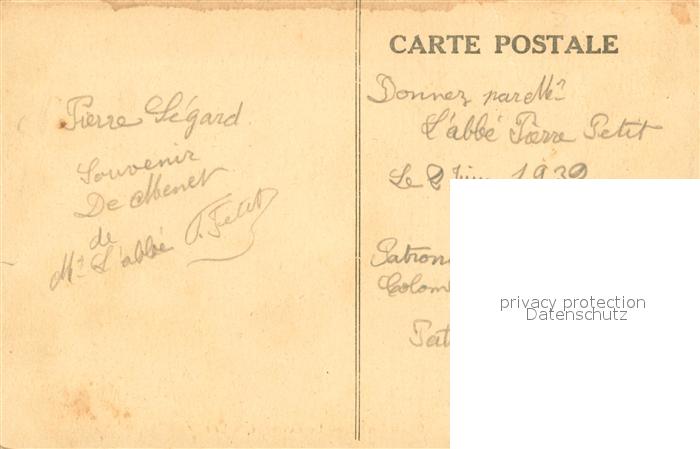 CARTE POSTALE
Pierre Ségard
Souvenir
De Menet
de
Mr L'abbé P. Petit
Donnez par Mr
L'abbé Pierre Petit
Le 2 Juin 1932
Patron
Colom
Pat
privacy protection
Datenschutz